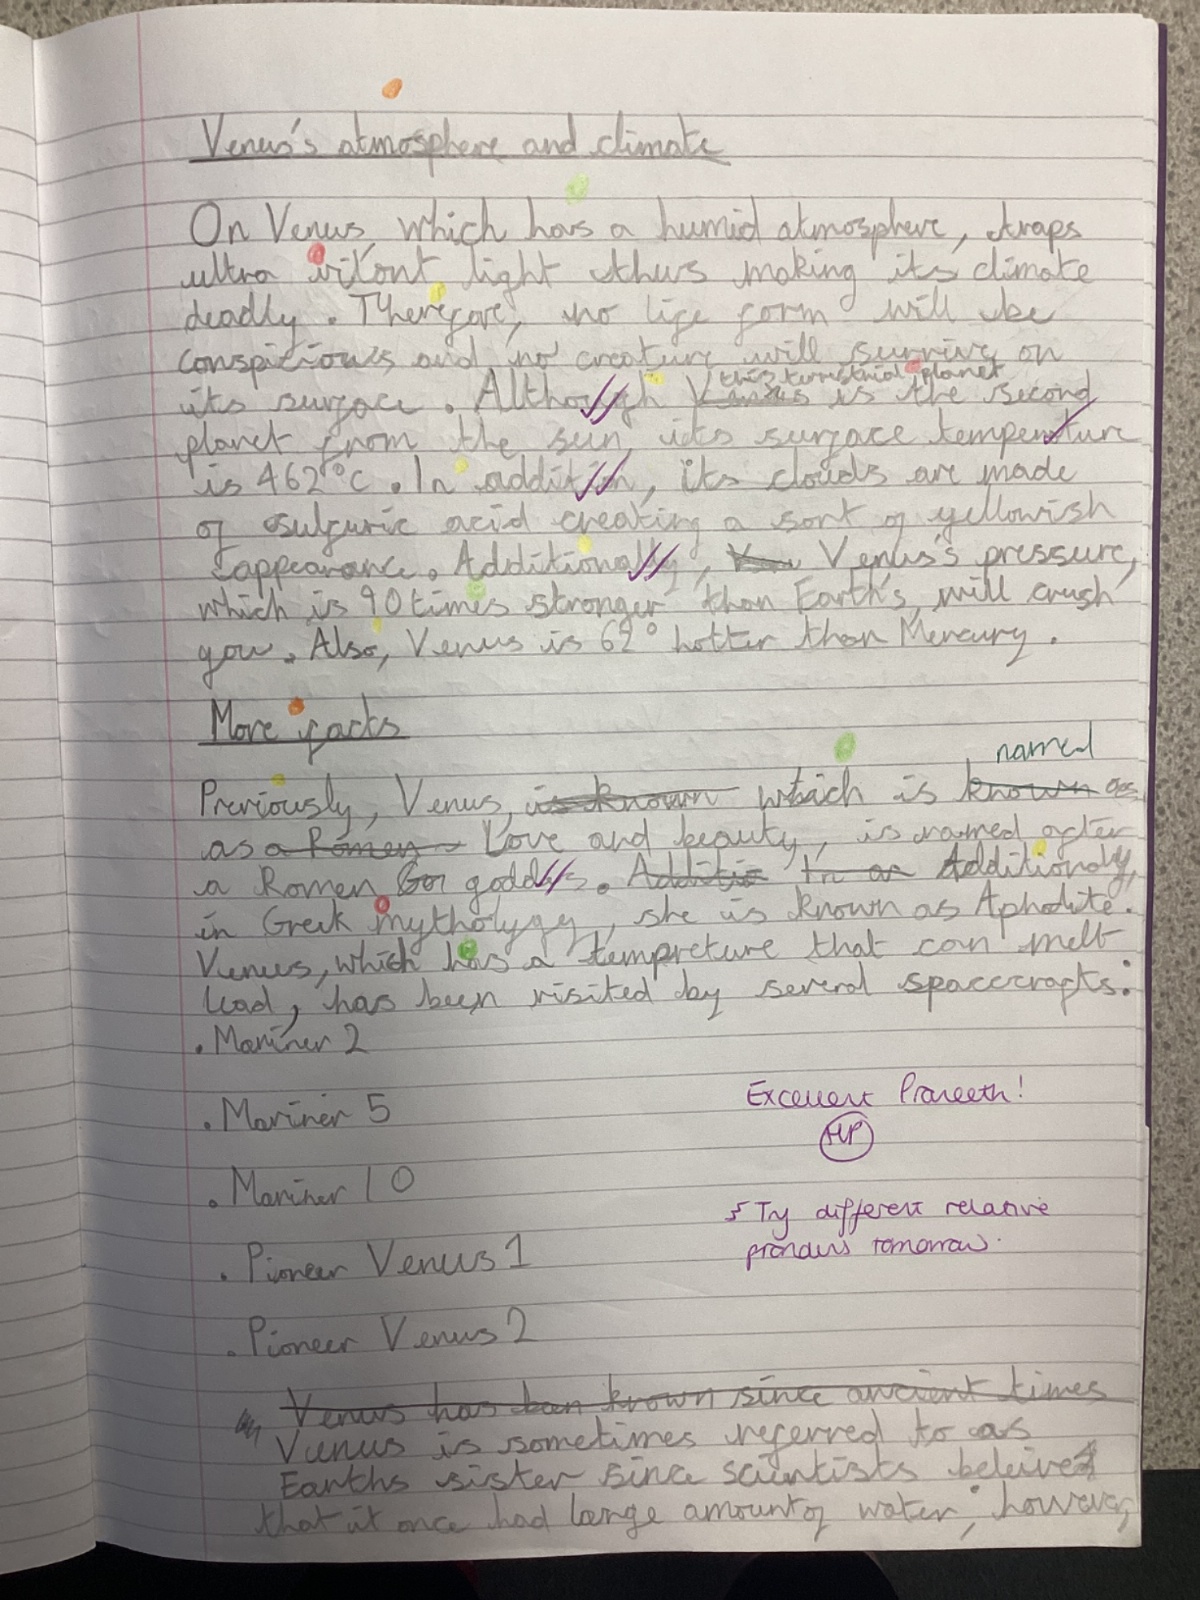 Venus's atmosphere and climate
On Venus, which has a humid atmosphere, traps
ultra light thus making its climate
deadly. Therefore, no life form will be
conspicious and no creature will survive on
this terrestrial planet
its surface. Although Venus is the second
planet from the sun, its surface temperature
is 462°C. In addition, its clouds are made
of sulfuric acid creating a sort of yellowish
appearance. Additionally, Venus's pressure,
which is 90 times stronger than Earth's, will crush
you. Also, Venus is 62° hotter than Mercury.
More facts
named
Previously, Venus, is known which is known as
as a Romen Love and beauty, is named after
a Romen goddess. Additio In an Additionaly,
in Greek mytholygy, she is known as Aphodite.
Venus, which has a tempreture that can melt
lead, has been visited by several spacecrafts:
. Mariner 2
. Mariner 5
. Mariner 10
. Pioneer Venus 1
. Pioneer Venus 2
Excellent Praneeth!
HP
Try different relative
pronouns tomorrow.
Venus has been known since ancient times
Venus is sometimes referred to as
Earths sister since scientists beleive
that it once had large amount of water; however,